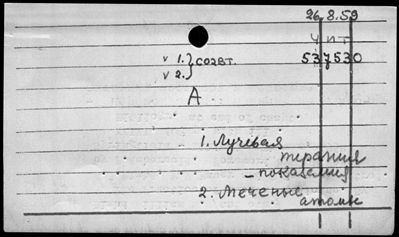 26.8.59
ЧИТ
537530
v 1.} СОАВТ.
v 2.
А
1. Лучевая
терапия
– показания
2. Меченые
атомы